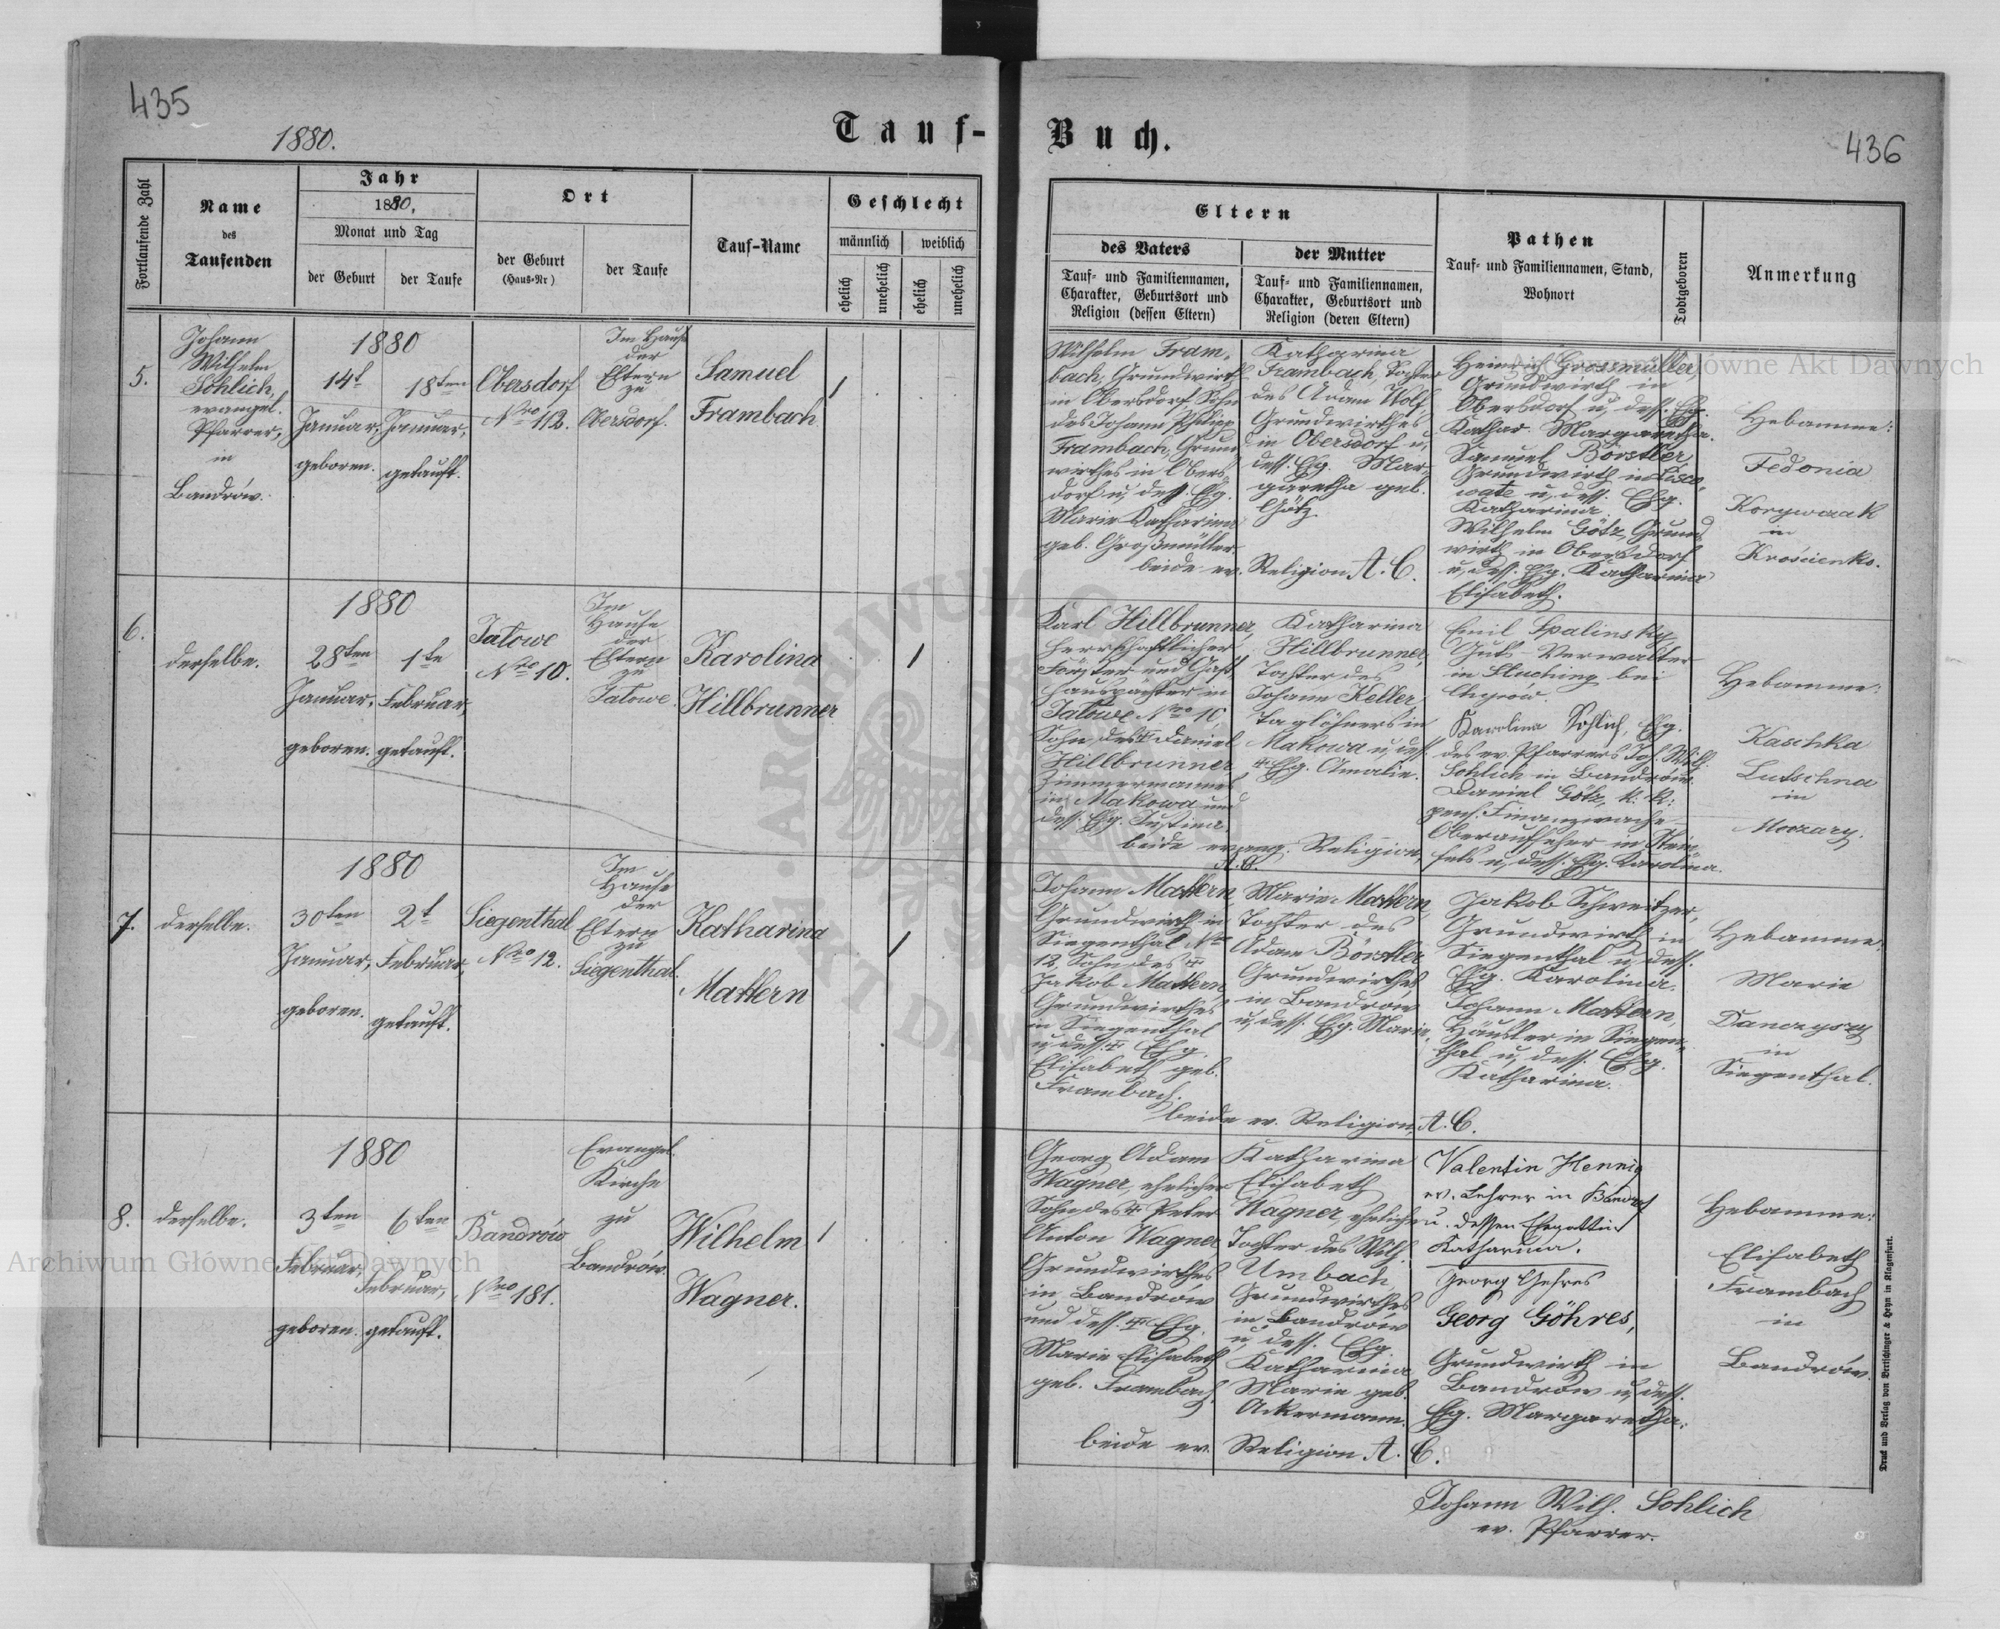 435
1880.
Tauf-
Buch.
436
Fortlaufende Zahl
Name
des
Taufenden
Jahr
1880,
Monat und Tag
der Geburt
der Taufe
Ort
der Geburt
(Haus-Nr)
der Taufe
Tauf-Name
Geschlecht
männlich
weiblich
ehelich
unehelich
ehelich
unehelich
Eltern
des Vaters
Tauf- und Familiennamen,
Charakter, Geburtsort und
Religion (dessen Eltern)
der Mutter
Tauf- und Familiennamen,
Charakter, Geburtsort und
Religion (deren Eltern)
Pathen
Tauf- und Familiennamen, Stand,
Wohnort
Todtgeboren
Anmerkung
5.
Johann
Wilhelm
Sohlich,
evangel.
Pfarrer,
in
Bandrów.
1880
14t
Januar,
geboren.
18ten
Januar,
getauft.
Obersdorf
Nro 112.
Im Hause
der
Eltern
zu
Obersdorf.
Samuel
Frambach
1
Wilhelm Fram-
bach, Grundwirth
in Obersdorf, Sohn
des Johann Philipp
Frambach, Grund-
wirthes in Obers-
dorf u, dess. Ehg.
Marie Katharina
geb. Großmüller.
Katharina
Frambach, Tochter
des Adam Wolf,
Grundwirthes
in Obersdorf u,
dess. Ehg. Mar-
garetha geb.
Götz.
beide ev. Religion A. C.
Heinrich Grossmüller,
Grundwirth in
Obersdorf u, dess. Ehg.
Kathar. Margaretha.
Samuel Börstler
Grundwirth in Lisco-
wate u, dess. Ehg.
Katharina.
Wilhelm Götz, Grund-
wirth in Obersdorf
u, dess. Ehg. Katharina
Elisabeth.
Hebamme:
Fedonia
Korywczak
in
Krościenko.
6.
derselbe.
1880
28ten
Januar,
geboren.
1te
Februar,
getauft.
Jatowe
Nro 10.
Im
Hause
der
Eltern
zu
Jatowe.
Karolina
Hillbrunner
1
Karl Hillbrunner,
herrschaftlicher
Förster und Gast-
hauspächter in
Jatowe Nro 10,
Sohn des † Daniel
Hillbrunner
Zimmermannes
in Makowa und
dess. Ehg. Justina.
Katharina
Hillbrunner,
Tochter des
Johann Keller,
Taglöhners in
Makowa u, dess.
† Ehg. Amalie.
beide evang. Religion,
A. C.
Emil Spalinsky,
Guts-Verwalter
in bei
Chyrow.
Karolina Sohlich, Ehg.
des ev. Pfarrers Joh. Wilh.
Sohlich in Bandrów.
Daniel Götz, k. k.
pens. Finanzwache-
Oberaufseher in Stein-
fels u, dess. Ehg. Karolina.
Hebamme:
Kaschka
Lutschna
in
Moczary.
7.
derselbe.
1880
30ten
Januar,
geboren.
2t
Februar,
getauft.
Siegenthal
Nro 12.
Im
Hause
der
Eltern
zu
Siegenthal.
Katharina
Mattern
1
Johann Mattern,
Grundwirth in
Siegenthal Nro
12, Sohn des †
Jakob Mattern,
Grundwirthes
in Siegenthal
u, dess. † Ehg.
Elisabeth geb.
Frambach.
Marie Mattern,
Tochter des
Adam Börstler
Grundwirthes
in Bandrów
u, dess. Ehg. Marie.
beide ev. Religion, A. C.
Jakob Schweitzer,
Grundwirth in
Siegenthal u, dess.
Ehg. Karolina.
Johann Mattern,
Häusler in Siegen-
thal u, dess. Ehg.
Katharina.
Hebamme:
Marie
Danczyszy
in
Siegenthal.
8.
derselbe.
1880
3ten
Februar,
geboren.
6ten
Februar,
getauft.
Bandrów
Nro 181.
Evangel.
Kirche
zu
Bandrów.
Wilhelm
Wagner.
1
Georg Adam
Wagner, ehelicher
Sohn des † Peter
Anton Wagner
Grundwirthes
in Bandrów
und dess. † Ehg.
Marie Elisabeth
geb. Frambach.
Katharina
Elisabeth
Wagner, eheliche
Tochter des Wilh.
Umbach
Grundwirthes
in Bandrów
u, dess. Ehg.
Katharina
Marie geb.
Ackermann.
beide ev. Religion A. C.
Valentin Hennig
ev. Lehrer in Bandrof
u. dessen Ehegattin
Katharina.
Georg Gehres
Georg Göhres,
Grundwirth in
Bandrów u, dess.
Ehg. Margaretha.
Hebamme:
Elisabeth
Frambach
in
Bandrów.
Johann Wilh. Sohlich
ev. Pfarrer.
Druck und Verlag von Bertschinger & Heyn in Klagenfurt.
Archiwum Główne Akt Dawnych
Archiwum Główne Akt Dawnych